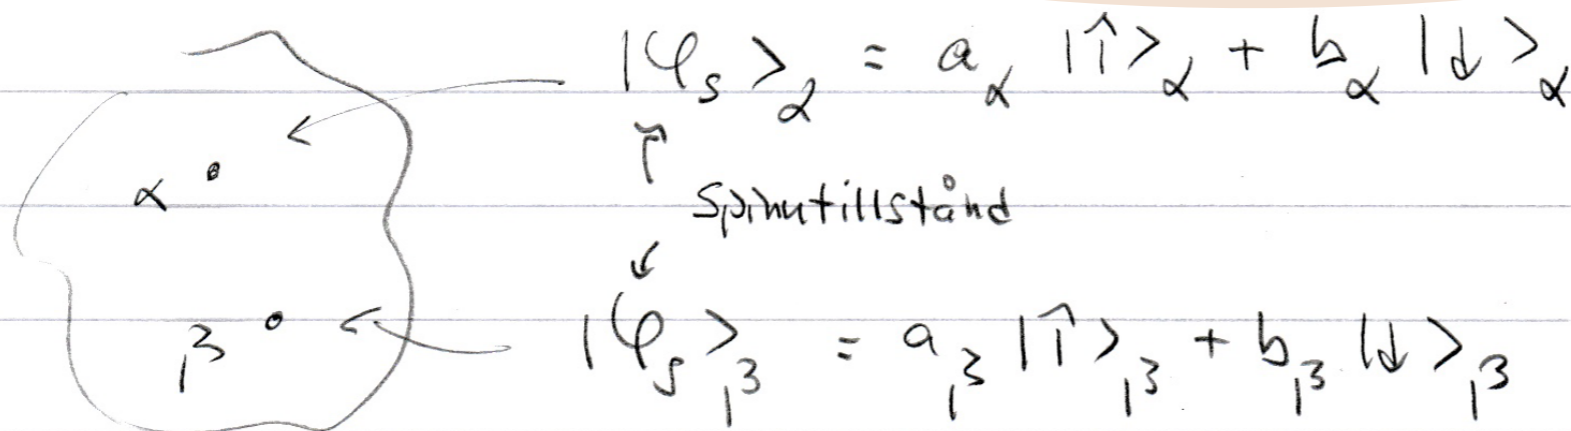 |φ_s>_α = a_α |↑>_α + b_α |↓>_α
α
↑
Spinntillstånd
↓
β
|φ_s>_β = a_β |↑>_β + b_β |↓>_β